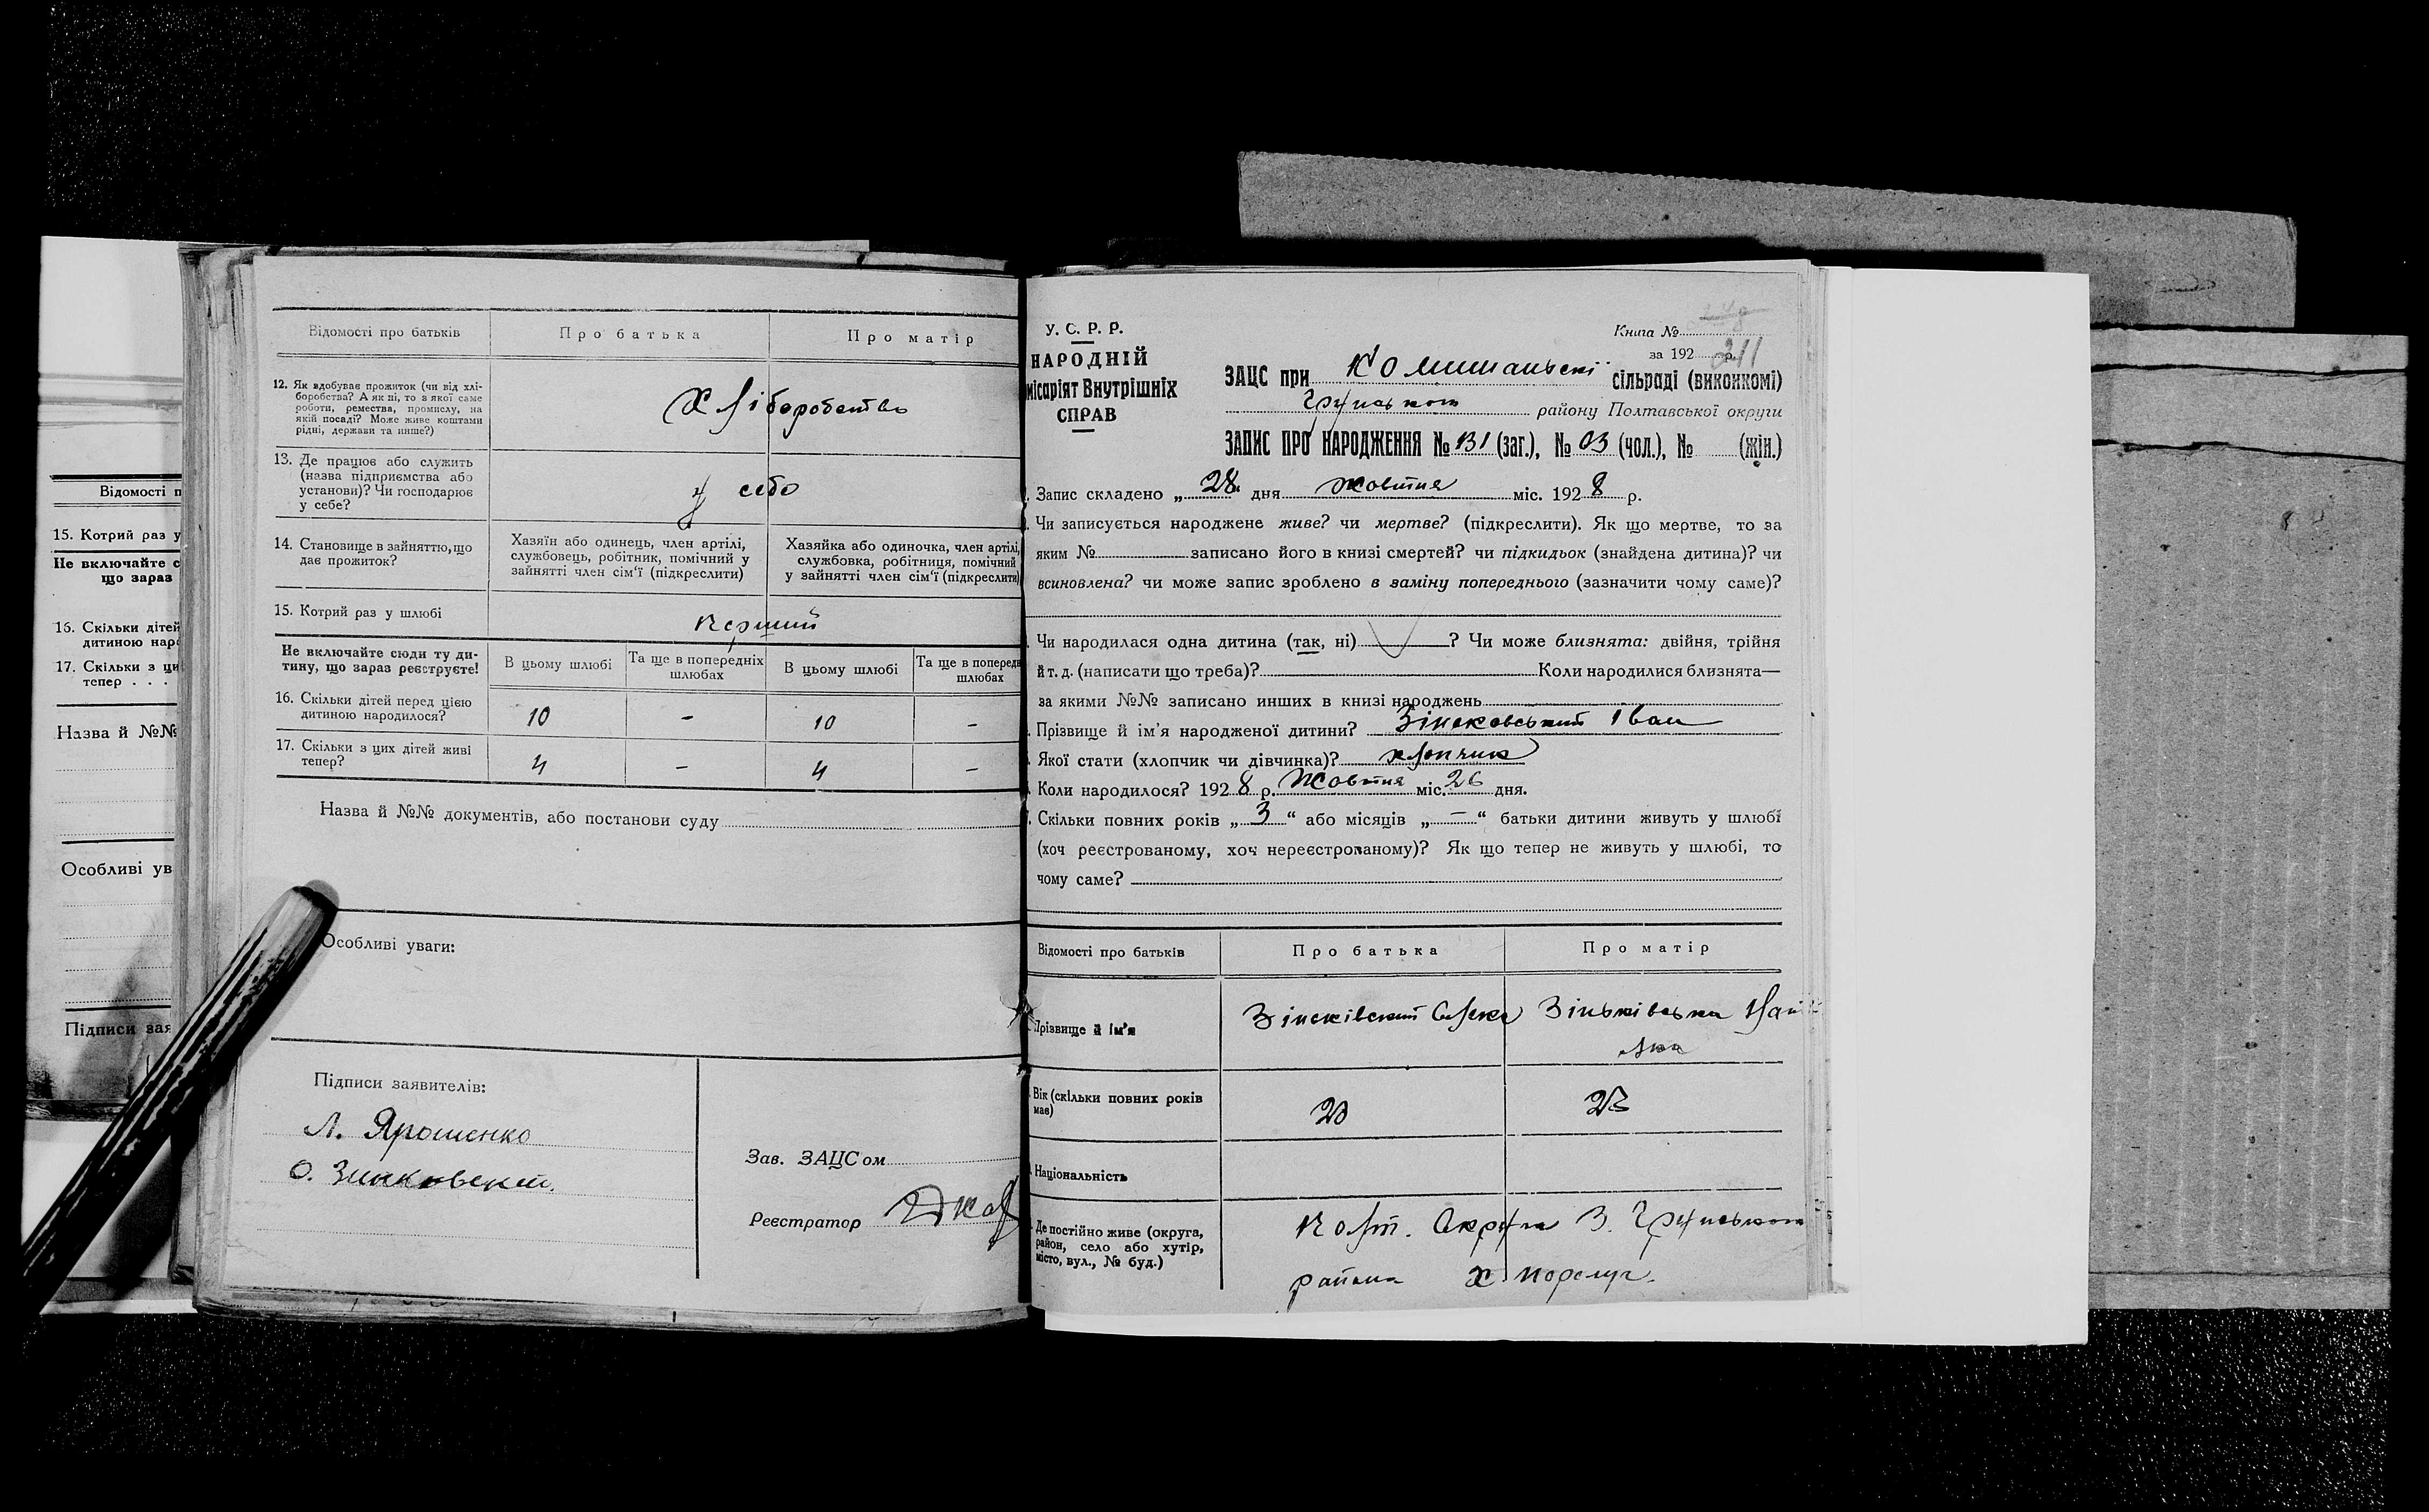 Відомості п
15. Котрий раз у
Не включайте с
що зараз
16. Скільки дітей
дитиною наро
17. Скільки з ци
тепер . . .
Назва й №№
Особливі ув
Підписи зая
Відомості про батьків
Про батька
Про матір
12. Як здобуває прожиток (чи від хлі-
боробства? А як ні, то з якої саме
роботи, ремества, промислу, на
якій посаді? Може живе коштами
рідні, держави та инше?)
Хліборобство
13. Де працює або служить
(назва підприємства або
установи)? Чи господарює
у себе?
у себе
14. Становище в зайняттю, що
дає прожиток?
Хазяїн або одинець, член артілі,
службовець, робітник, помічний у
зайнятті член сім'ї (підкреслити)
Хазяйка або одиночка, член артілі,
службовка, робітниця, помічний
у зайнятті член сім'ї (підкреслити)
15. Котрий раз у шлюбі
перший
Не включайте сюди ту ди-
тину, що зараз реєструєте!
В цьому шлюбі
Та ще в попередніх
шлюбах
В цьому шлюбі
Та ще в поперед
шлюбах
16. Скільки дітей перед цією
дитиною народилося?
10 – 10 –
17. Скільки з цих дітей живі
тепер?
4 – 4 –
Назва й №№ документів, або постанови суду
Особливі уваги:
Підписи заявителів:
Л. Ярошенко
О. Зинковский.
Зав. ЗАЦСом
Реєстратор
У. С. Р. Р.
НАРОДНІЙ
місаріят Внутрішніх
СПРАВ
Книга №
за 192 р.
211
ЗАЦС при Комишанські сільраді (виконкомі)
Грунського району Полтавської округи
ЗАПИС ПРО НАРОДЖЕННЯ № 131 (заг.), № 03 (чол.), № (жін.)
Запис складено „ 28 " дня жовтня міс. 1928 р.
Чи записується народжене живе? чи мертве? (підкреслити). Як що мертве, то за
яким № записано його в книзі смертей? чи підкидьок (знайдена дитина)? чи
всиновлена? чи може запис зроблено в заміну попереднього (зазначити чому саме)?
Чи народилася одна дитина (так, ні) ? Чи може близнята: двійня, трійня
й т. д. (написати що треба)? Коли народилися близнята—
за якими №№ записано инших в книзі народжень
Прізвище й ім'я народженої дитини? Зінековський Іван
Якої стати (хлопчик чи дівчинка)? хлопчик
Коли народилося? 1928 р. Жовтня міс. 26 дня.
Скільки повних років „ 3 " або місяців „ – " батьки дитини живуть у шлюбі
(хоч реєстрованому, хоч нереєстрованому)? Як що тепер не живуть у шлюбі, то
чому саме?
Відомості про батьків
Про батька
Про матір
Прізвище й ім'я
Зінеківский Олекс
Зіньківська
Вік (скільки повних років
має)
23
Національність
Де постійно живе (округа,
район, село або хутір,
місто, вул., № буд.)
Полт. Округа З. Грунського
района х.